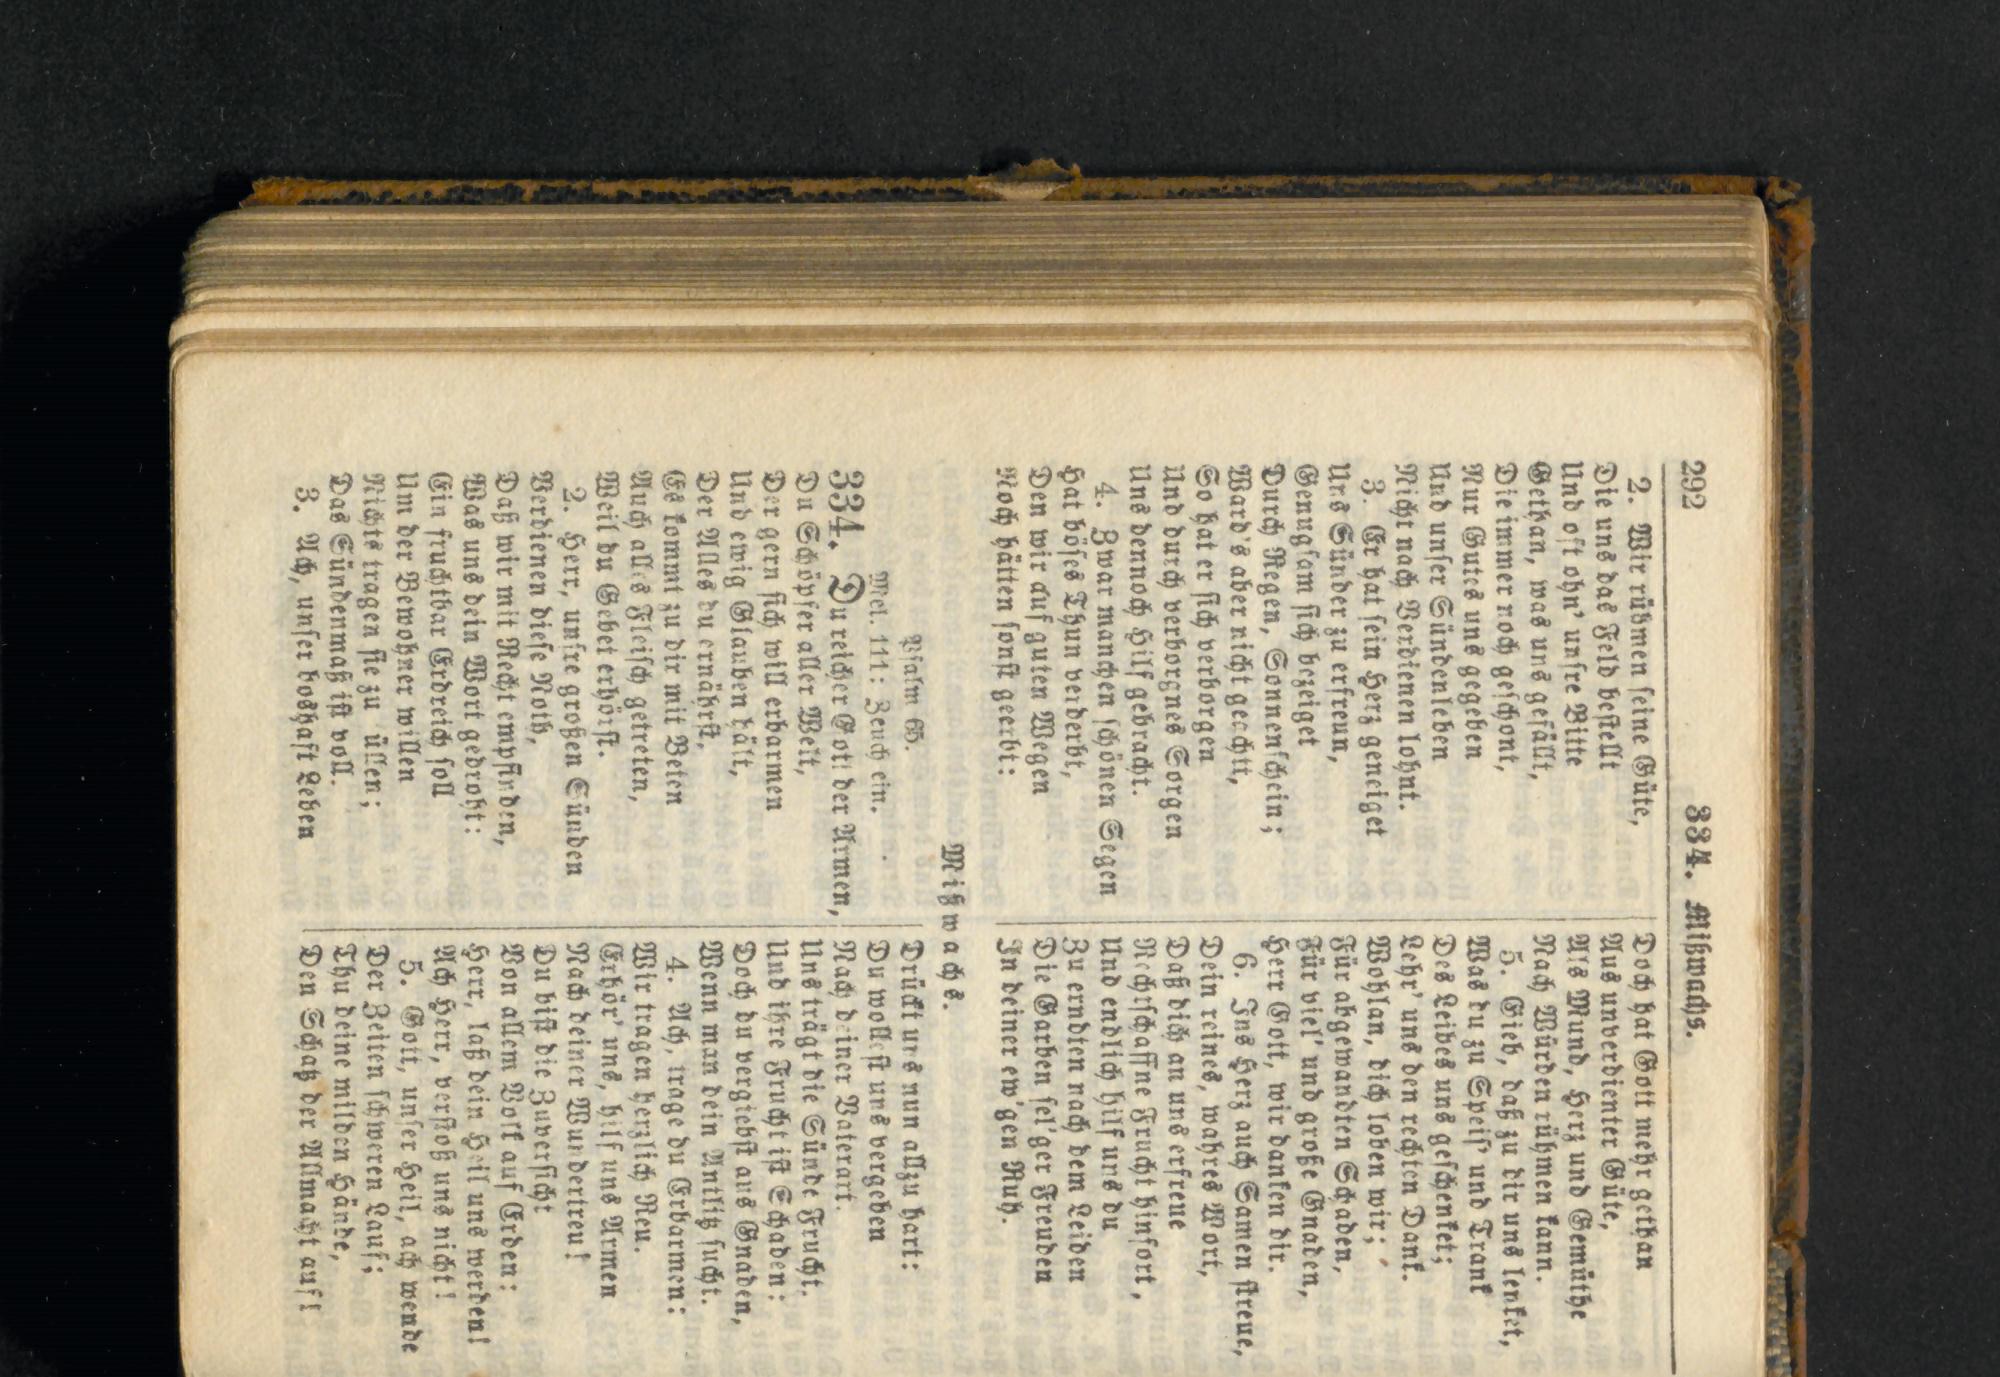 292
334. Mißwachs.
2. Wir rühmen seine Güte,
Die uns das Feld bestellt
Und oft ohn' unsre Bitte
Gethan, was uns gefällt,
Die immer noch geschont,
Nur Gutes uns gegeben
Und unser Sündenleben
Nicht nach Verdienen lohnt.
3. Er hat sein Herz geneiget
Uns Sünder zu erfreun,
Genugsam sich bezeiget
Durch Regen, Sonnenschein;
Ward's aber nicht geacht,
So hat er sich verborgen
Und durch verborgnes Sorgen
Uns dennoch Hilf gebracht.
4. Zwar manchen schönen Segen
Hat böses Thun verderbt,
Den wir auf guten Wegen
Noch hätten sonst geerbt:
Doch hat Gott mehr gethan
Aus unverdienter Güte,
Als Mund, Herz und Gemüthe
Nach Würden rühmen kann.
5. Gieb, daß zu dir uns lenket,
Was du zu Speis' und Trank
Des Leibes uns geschenket;
Lehr' uns den rechten Dank.
Wohlan, dich loben wir;
Für abgewandten Schaden,
Für viel' und große Gnaden,
Herr Gott, wir danken dir.
6. Ins Herz auch Samen streue,
Dein reines, wahres Wort,
Daß dich an uns erfreue
Rechtschaffne Frucht hinfort,
Und endlich hilf uns du
Zu erndten nach dem Leiden
Die Garben sel'ger Freuden
In deiner ew'gen Ruh.
Mißwachs.
Psalm 65.
Mel. 111: Zeuch ein.
334. Du reicher Gott der Armen,
Du Schöpfer aller Welt,
Der gern sich will erbarmen
Und ewig Glauben hält,
Der Alles du ernährst,
Es kommt zu dir mit Beten
Auch alles Fleisch getreten,
Weil du Gebet erhörst.
2. Herr, unsre großen Sünden
Verdienen diese Noth,
Daß wir mit Recht empfinden,
Was uns dein Wort gedroht:
Ein fruchtbar Erdreich soll
Um der Bewohner willen
Nichts tragen sie zu üllen;
Das Sündenmaß ist voll.
3. Ach, unser boshaft Leben
Drückt uns nun allzu hart:
Du wollest uns vergeben
Nach deiner Vaterart.
Uns trägt die Sünde Frucht.
Und ihre Frucht ist Schaden:
Doch du vergiebst aus Gnaden,
Wenn man dein Antlitz sucht.
4. Ach, trage du Erbarmen:
Wir tragen herzlich Reu.
Erhör' uns, hilf uns Armen
Nach deiner Wundertreu!
Du bist die Zuversicht
Von allem Volk auf Erden:
Herr, laß dein Heil uns werden!
Ach Herr, verstoß uns nicht!
5. Gott, unser Heil, ach wende
Der Zeiten schweren Lauf;
Thu deine milden Hände,
Den Schatz der Allmacht auf!